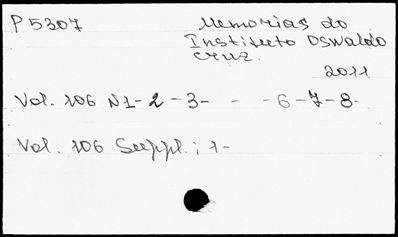 P5307 Memorias do
Instituto Oswaldo
Cruz.
2011
Vol. 106 N1-2-3- - -6-7-8-
Vol. 106 Suppl.; 1-